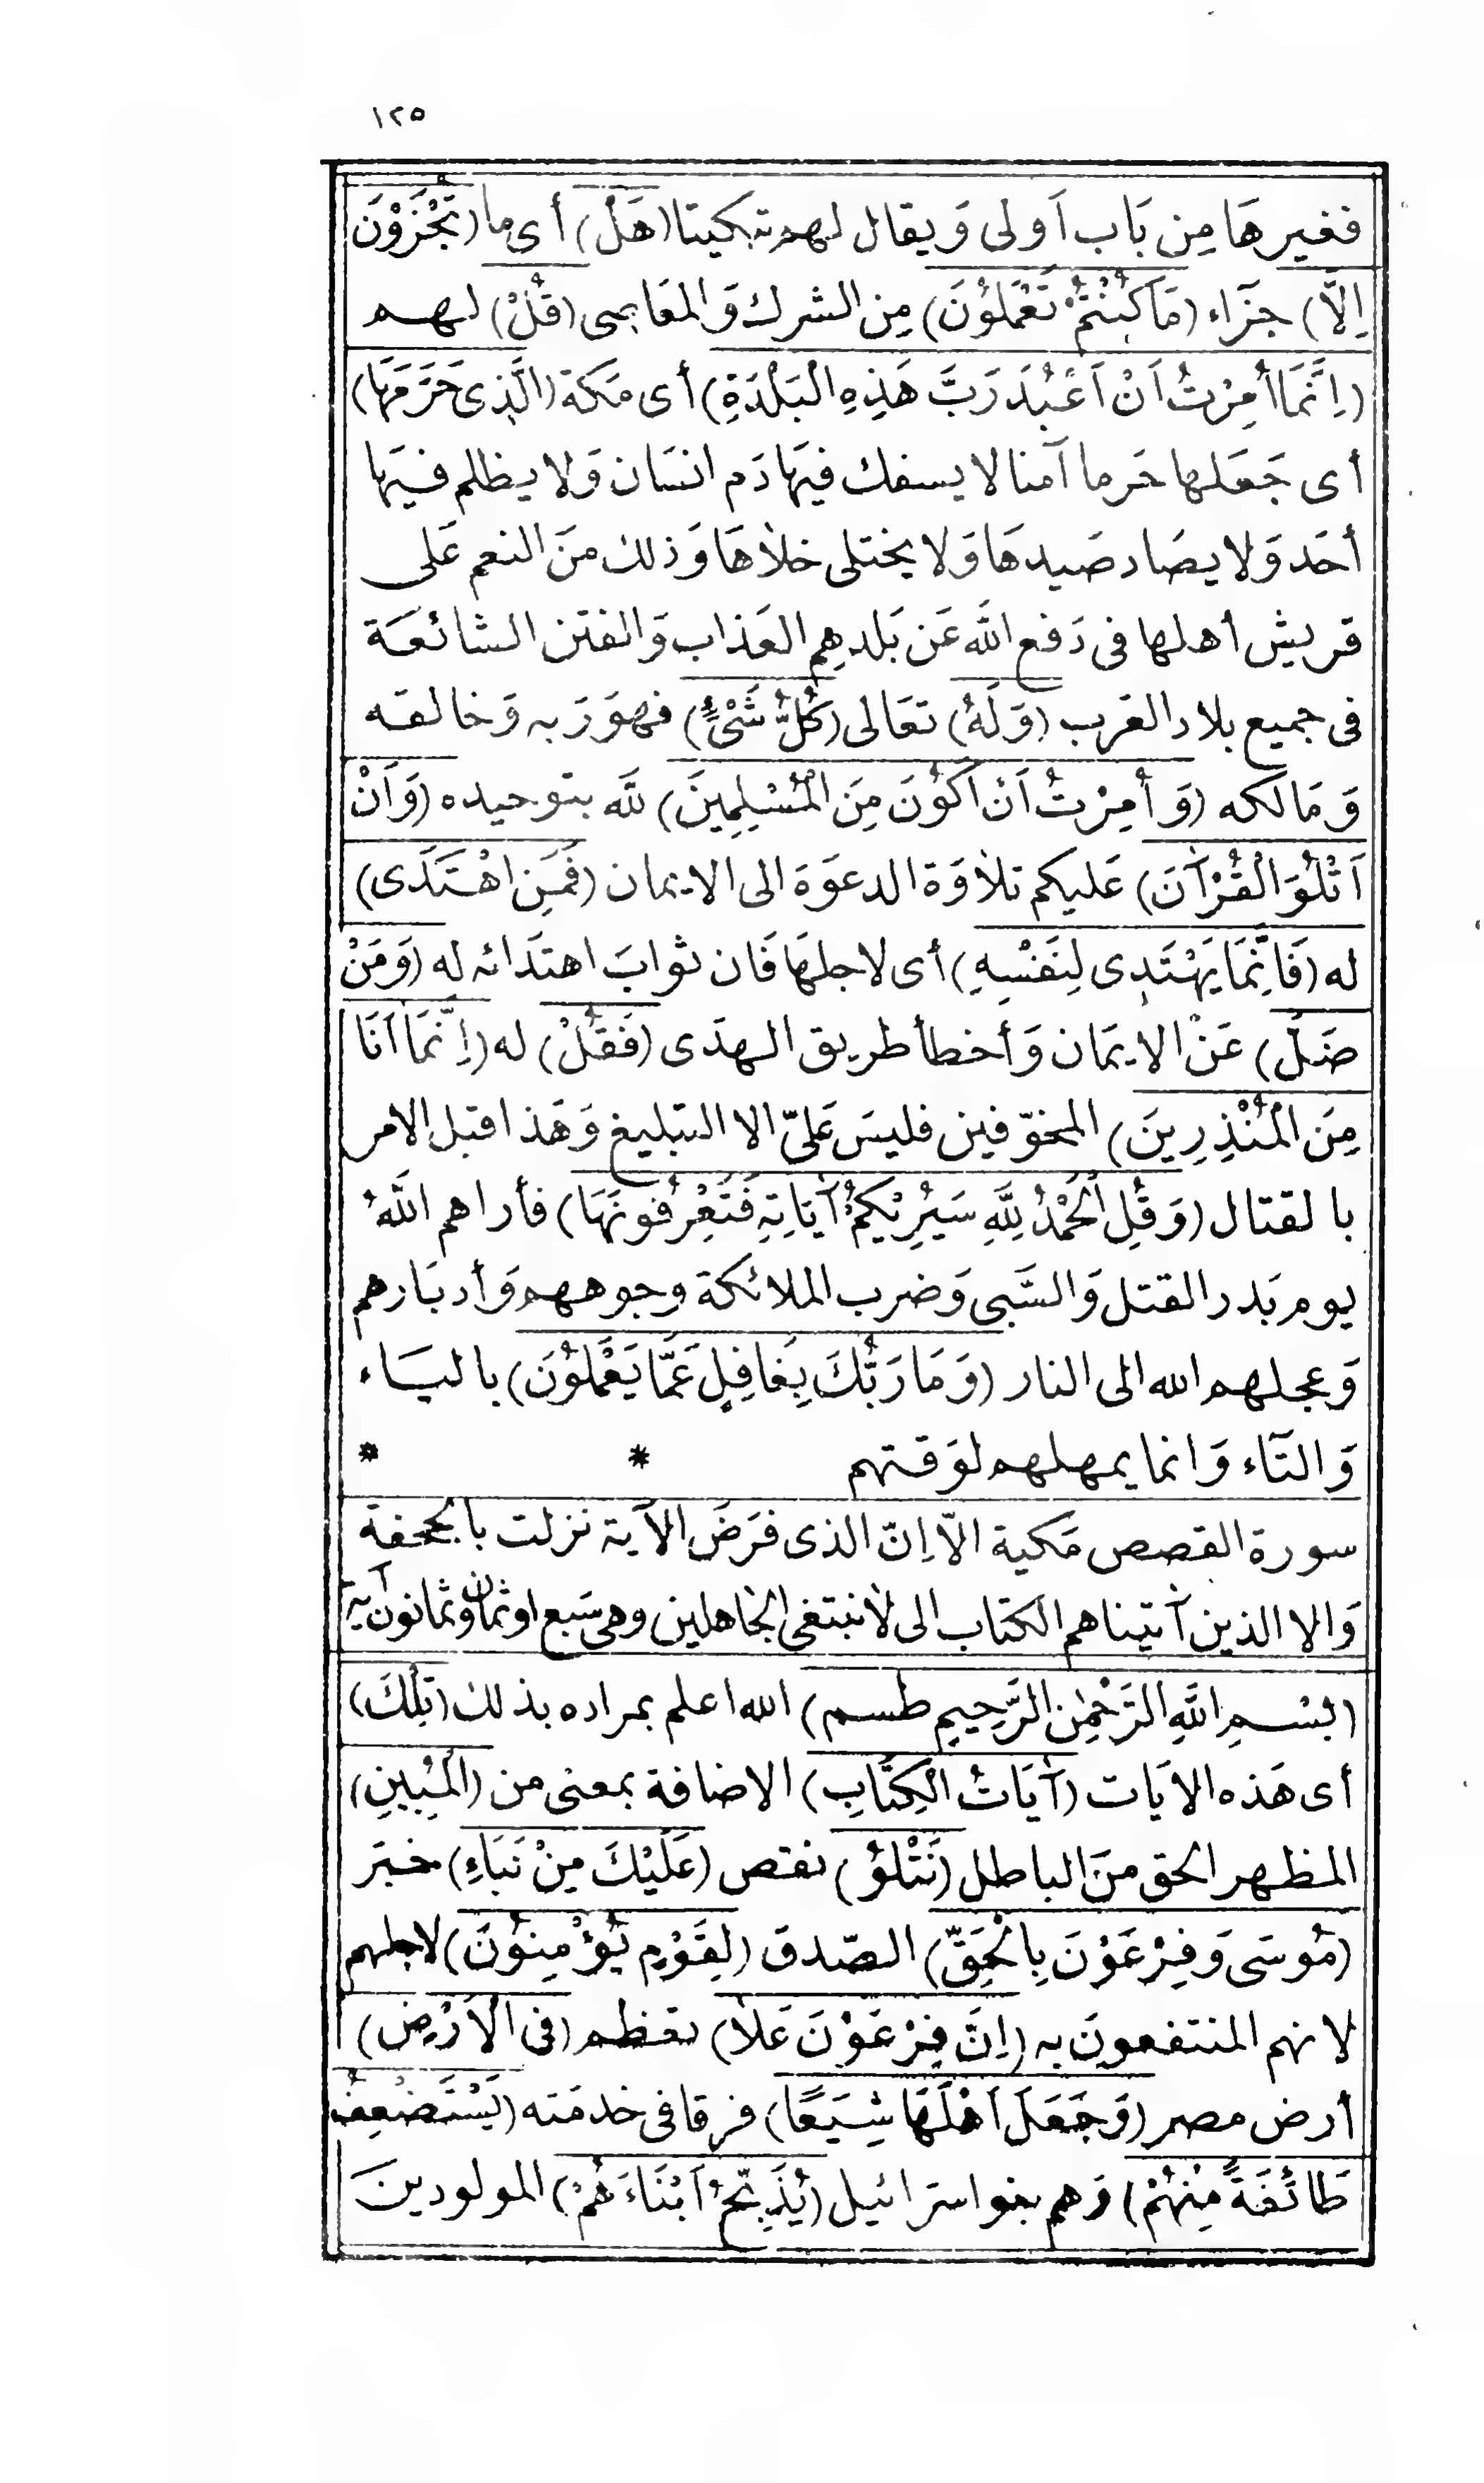 ١٢٥
فغيرهَا مِن بَاب اَولى وَيقال لهم تبكيتا (هَلْ) أى ما (تُجْزَوْنَ
اِلَّا) جزَآء (مَا كُنْتُمْ تَعْمَلُوْنَ) مِن الشرك وَالمعَاصى (قُلْ) لهم
(اِنَّمَا أُمِرْتُ اَنْ اَعْبُدَ رَبَّ هَذِهِ الْبَلْدَةِ) أى مَكة (الَّذِى حَرَّمَهَا)
أى جَعَلها حَرما آمنا لا يسفك فيهَا دَم انسَان وَلا يظلم فيهَا
أحَد وَلا يصَاد صَيدهَا وَلا يختلى خلاهَا وَذلك منَ النعم عَلى
قريش أهلها فى دَفع الله عَن بَلدهِم العَذاب وَالفتن الشائعَة
فى جميع بلاد العَرب (وَلَهُ) تعَالى (كُلُّ شَىْءٍ) فهوَ رَبه وَخالقه
وَمَالكه (وَأُمِرْتُ اَنْ اَكُوْنَ مِنَ الْمُسْلِمِينَ) لله بتوحيده (وَاَنْ
اَتْلُوَ الْقُرْآنَ) عَليكم تلاوَة الدعوَة الى الايمان (فَمَنِ اهْتَدَى)
له (فَاِنَّمَا يَهْتَدِى لِنَفْسِهِ) أى لاجلهَا فَان ثوابَ اهتدَائه له (وَمَنْ
ضَلَّ) عَنْ الايمَان وَأخطأ طريق الهدَى (فَقُلْ) له (اِنَّمَا اَنَا
مِنَ الْمُنْذِرِينَ) المخوّفين فليسَ عَلىّ الا التبليغ وَهَذا قبل الامر
بالقتال (وَقُلِ الْحَمْدُ لِلَّهِ سَيُرِيْكُمْ آيَاتِهِ فَتَعْرِفُونَهَا) فأراهم اللهُ
يوم بَدر القتل وَالسَّبى وَضرب الملائكة وجوههم وَأدبَارهم
وَعجلهم الله الى النار (وَمَا رَبُّكَ بِغَافِلٍ عَمَّا يَعْمَلُوْنَ) باليَاء
وَالتَآء وَانما يمهلهم لوَقتهم * *
سورة القصص مَكية الاّ اِنّ الذى فرَضَ الآية نزلت بالجحفة
وَالا الذين آتيناهم الكتاب الى لا نبتغى الجاهلين وهى سَبع او ثمان وثمانون آية
(بِسْمِ اللَّهِ الرَّحْمٰنِ الرَّحِيمِ طسم) الله اعلم بمراده بذلك (تِلْكَ)
أى هَذه الايَات (آيَاتُ الْكِتَابِ) الاضافة بمعنى من (الْمُبِينِ)
المظهر الحق منَ الباطل (نَتْلُوْ) نقص (عَلَيْكَ مِنْ نَبَاءِ) خبَر
(مُوسَى وَفِرْعَوْنَ بِالْحَقِّ) الصّدق (لِقَوْمٍ يُؤْمِنُوْنَ) لاجلهم
لانهم المنتفعون به (اِنَّ فِرْعَوْنَ عَلَا) تعَظم (فى الْاَرْضِ)
أرض مصر (وَجَعَلَ اَهْلَهَا شِيَعًا) فرقا فى خدمَته (يَسْتَضْعِفُ
طَائِفَةً مِنْهُمْ) وَهم بنو اسرَائيل (يُذَبِّحُ اَبْنَاءَهُمْ) المولودينَ